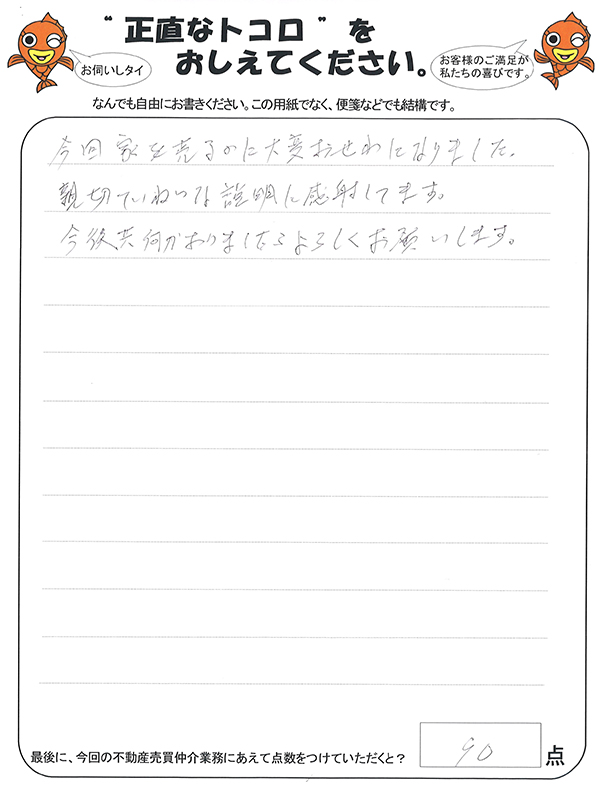 "正直なトコロ"を
おしえてください。
お伺いしタイ
お客様のご満足が
私たちの喜びです。
なんでも自由にお書きください。この用紙でなく、便箋などでも結構です。
今回家を売るのに大変おせわになりました。
親切ていねいな説明に感射してます。
今後共何かありましたらよろしくお願いします。
最後に、今回の不動産売買仲介業務にあえて点数をつけていただくと？
90
点